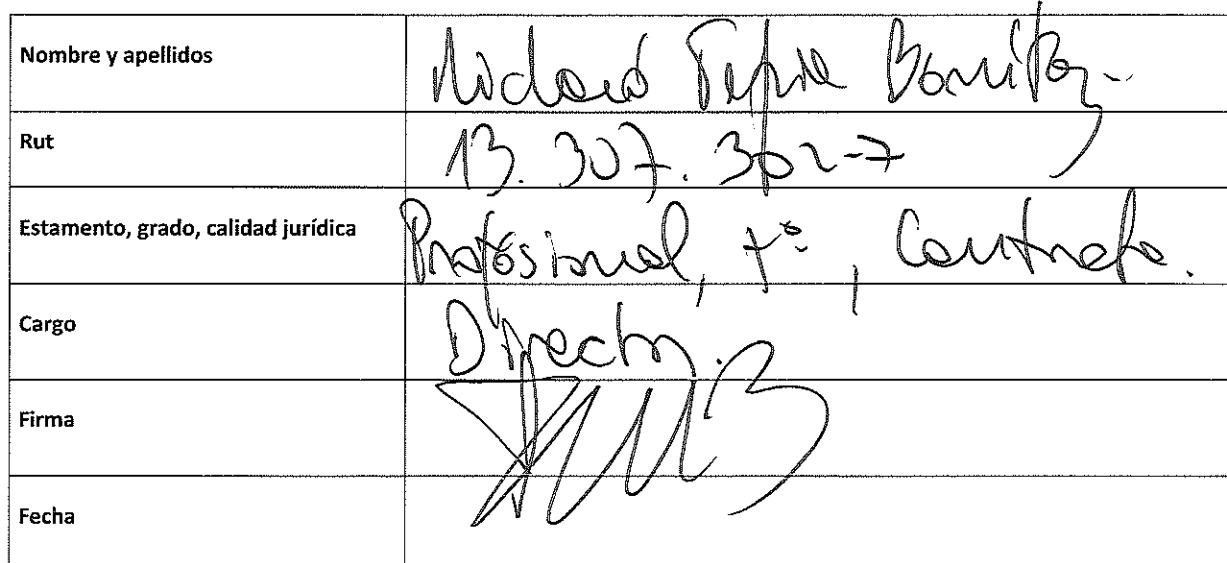 Nombre y apellidos
Rut 13.307.302-7
Estamento, grado, calidad jurídica Profesional, 7°, Contrata.
Cargo Director.
Firma
Fecha